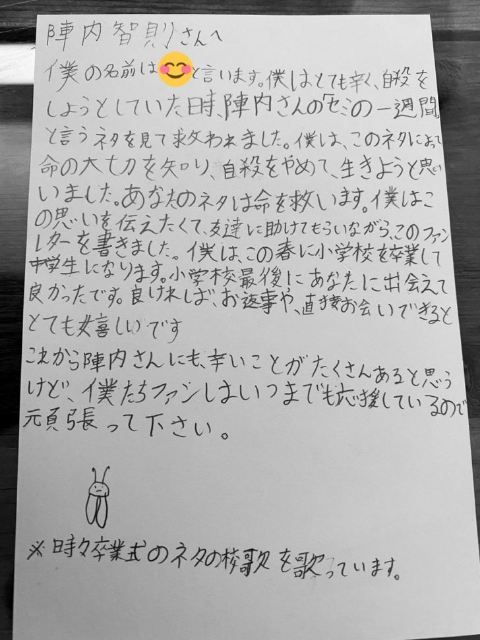 陣内智則さんへ
僕の名前は😊と言います。僕はとても辛く、自殺を
しようとしていた時、陣内さんのセミの一週間
と言うネタを見て救われました。僕は、このネタによって
命の大切を知り、自殺をやめて、生きようと思い
いました。あなたのネタは命を救います。僕はこ
の思いを伝えたくて、友達に助けてもらいながら、このファン
レターを書きました。僕は、この春に小学校を卒業して
中学生になります。小学校最後にあなたに出会えて
良かったです。良ければ、お返事や、直接お会いできると
とても嬉しいです
これから陣内さんにも、辛いことがたくさんあると思う
けど、僕たちファンはいつまでも応援しているので
元頑張って下さい。
※時々卒業式のネタの校歌を歌っています。